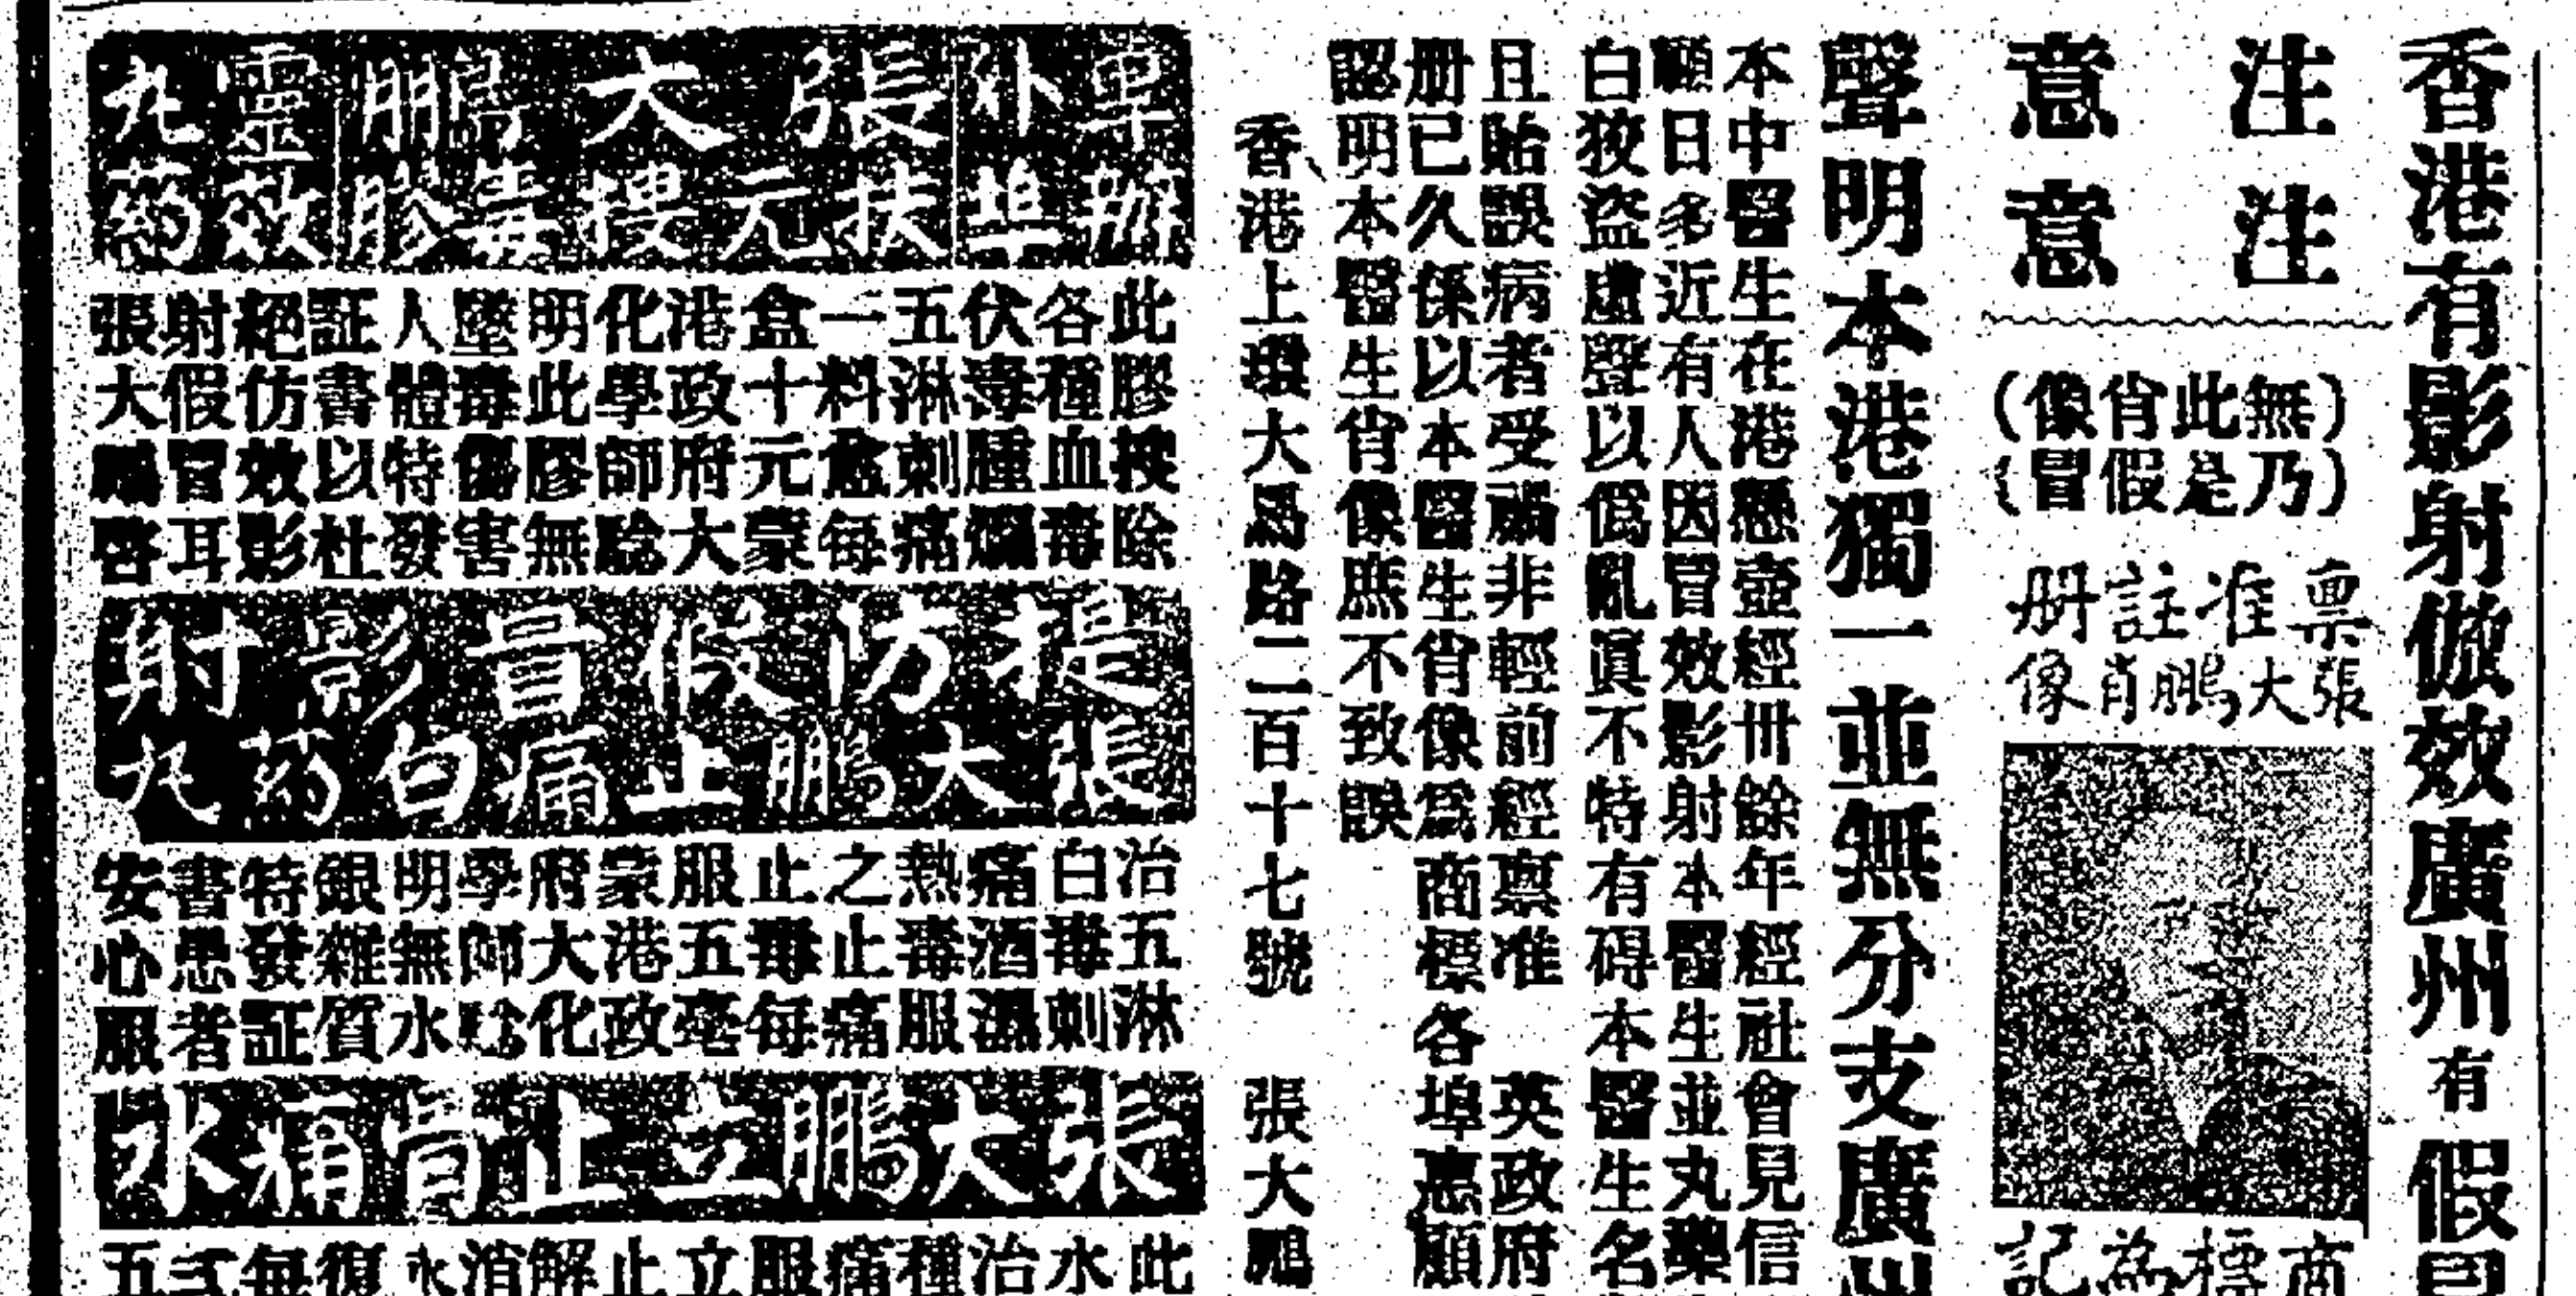 香港有影射倣效廣州有假冒
注意
注意
(無此肖像)
(乃是假冒)
禀准註册
張大鵬肖像
商標為記
聲明本港獨一並無分支廣州
本中醫生在港懸壺經卅餘年經社會見信
顧日多近有人因冒效影射本醫生並丸藥
白狡盜虛聲以偽亂眞不特有碍本醫生名
且貽誤病者受禍非輕前經禀准 英政府
册已久係以本醫生肖像爲商標各埠惠顧
認明本醫生肖像庶不致誤
香港上環大馬路二百十七號 張大鵬
張大鵬
扶元搜毒膠
靈效
丸葯
此膠按除
各種血毒
伏毒腫爛
五淋刺痛
一料愈每
盒十元蒙
港政府大
化學師驗
明此膠無
墜毒傷害
人體特發
証書以杜
絕仿效影
射假冒耳
張大鵬啓
提防假冒影射
張大鵬止痛白葯丸
治五淋
白毒刺
痛酒濕
熱毒服
之止痛
止毒每
服五毫
蒙港政
府大化
學師驗
明無水
銀雜質
特發証
書患者
安心服
張大鵬立止骨痛水
此水治種痛服立止解消永復每三五